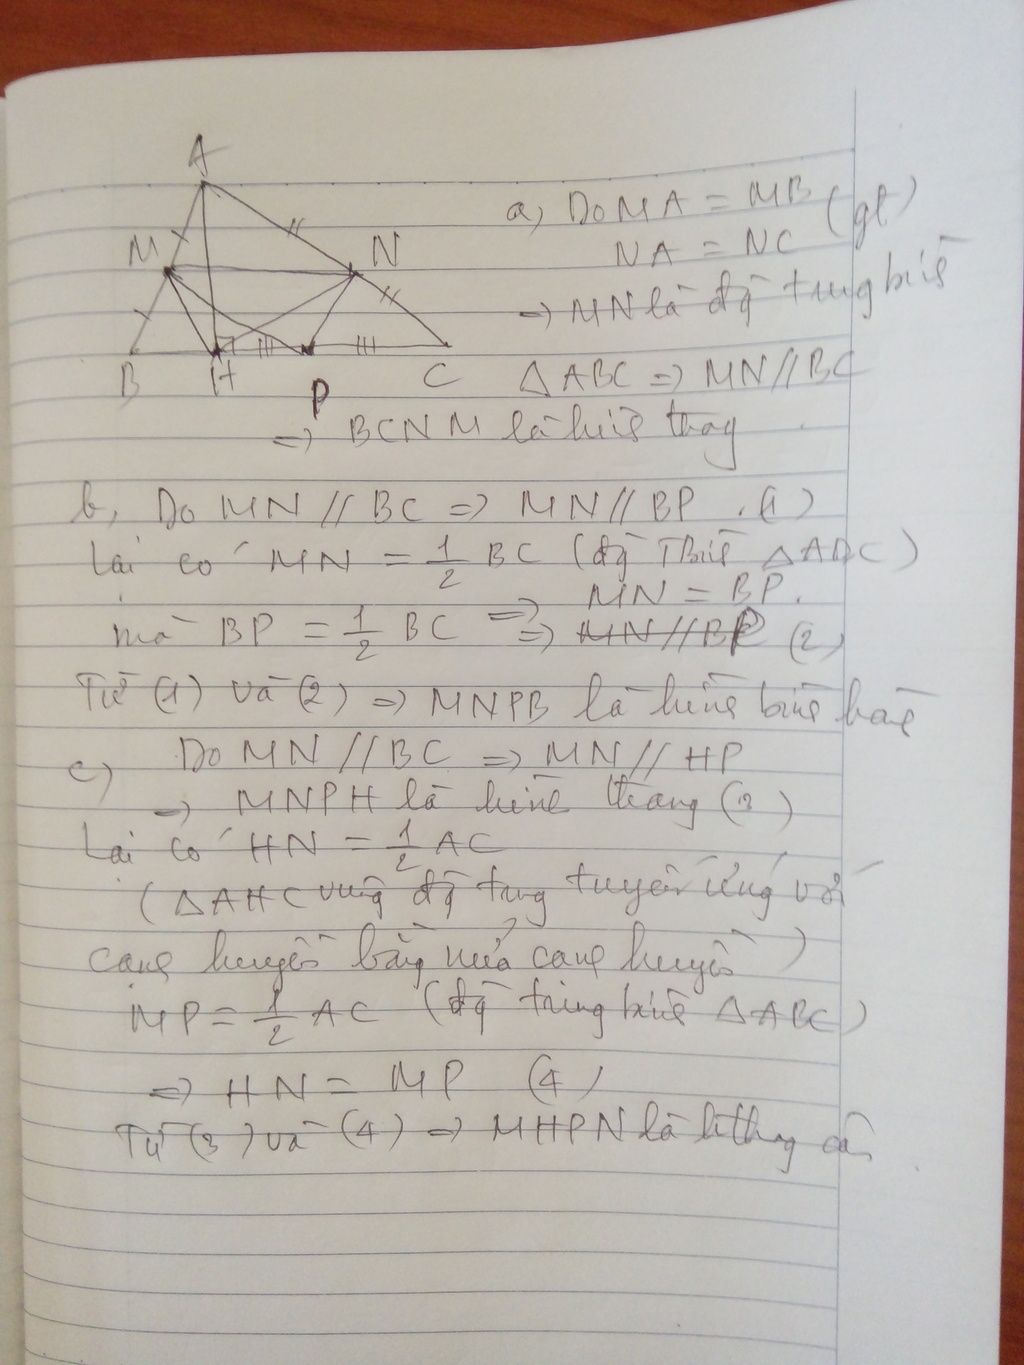 A
M
N
B
H
P
C
a, Do MA = MB (gt)
NA = NC
=> MN là đg trung bình
△ABC => MN//BC
=> BCNM là hình thang
b, Do MN // BC => MN // BP (1)
Lại có MN = 1/2 BC (đg TBình △ABC)
MN = BP.
mà BP = 1/2 BC => => MN//BP (2)
Từ (1) và (2) => MNPB là hình bình hành
c) Do MN // BC => MN // HP
=> MNPH là hình thang (3)
Lại có HN = 1/2 AC
(△AHC vuông đg trung tuyến ứng với
cạnh huyền bằng nửa cạnh huyền)
MP = 1/2 AC (đg trung bình △ABC)
=> HN = MP (4)
Từ (3) và (4) => MHPN là hthang cân